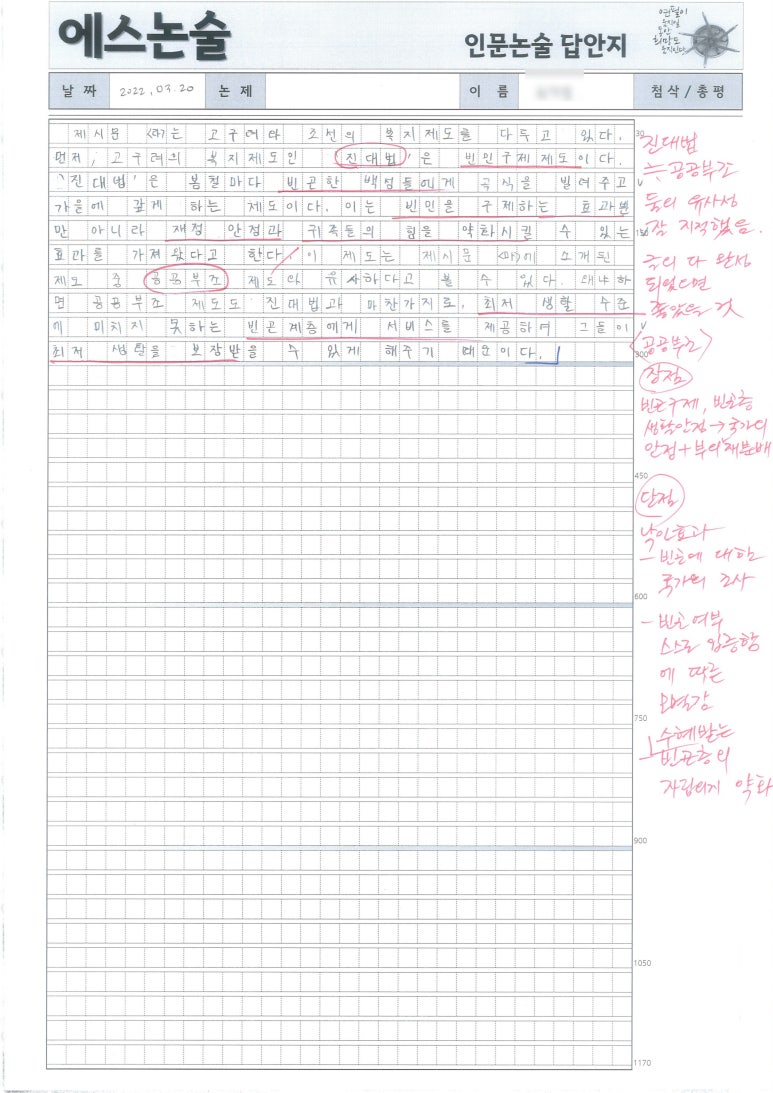 에스논술
인문논술 답안지
연필이
움직일
동안
희망도
움직인다
날 짜
2022. 03. 20
논 제
이 름
첨삭 / 총평
제시문 <라>는 고구려와 조선의 복지제도를 다루고 있다.
먼저, 고구려의 복지제도인 '진대법'은 빈민구제 제도이다.
'진대법'은 봄철마다 빈곤한 백성들에게 곡식을 빌려주고
가을에 갚게 하는 제도이다. 이는 빈민을 구제하는 효과뿐
만 아니라 재정 안정과 귀족들의 힘을 약화시킬 수 있는
효과를 가져왔다고 한다. 이 제도는 제시문 <마>에 소개된
제도 중 공공부조 제도와 유사하다고 볼 수 있다. 왜냐하
면 공공부조 제도도 진대법과 마찬가지로, 최저 생활 수준
에 미치지 못하는 빈곤계층에게 서비스를 제공하여 그들이
최저 생활을 보장받을 수 있게 해주기 때문이다.
30
150
300
450
600
750
900
1050
1170
진대법
≒ 공공부조
둘의 유사성
잘 지적했음.
글이 다 완성
되었으면
좋았을 것
<공공부조>
장점
빈곤구제, 빈곤층
생활안정→국가의
안정+부의 재분배
단점
낙인효과
- 빈곤에 대한
국가의 조사
- 빈곤여부
스스로 입증함
에 따른
모멸감
수혜받는
빈곤층의
자립의지 약화